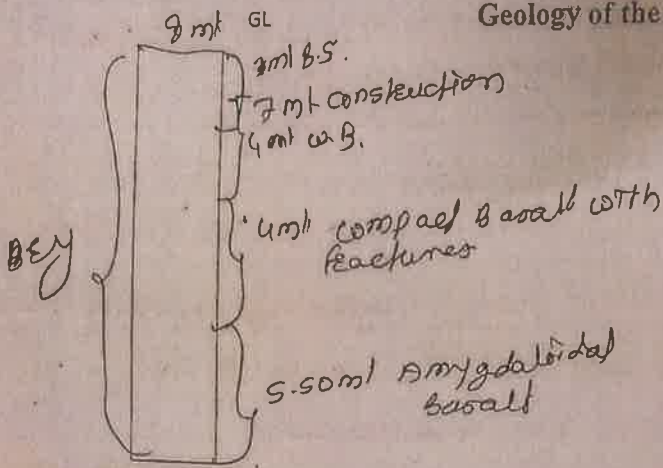 Geology of the
8 mt GL
1mt B.S.
7 mt construction
4 mt w.B.
4mt compact Basalt with
fractures
5.50mt Amygdaloidal
Basalt